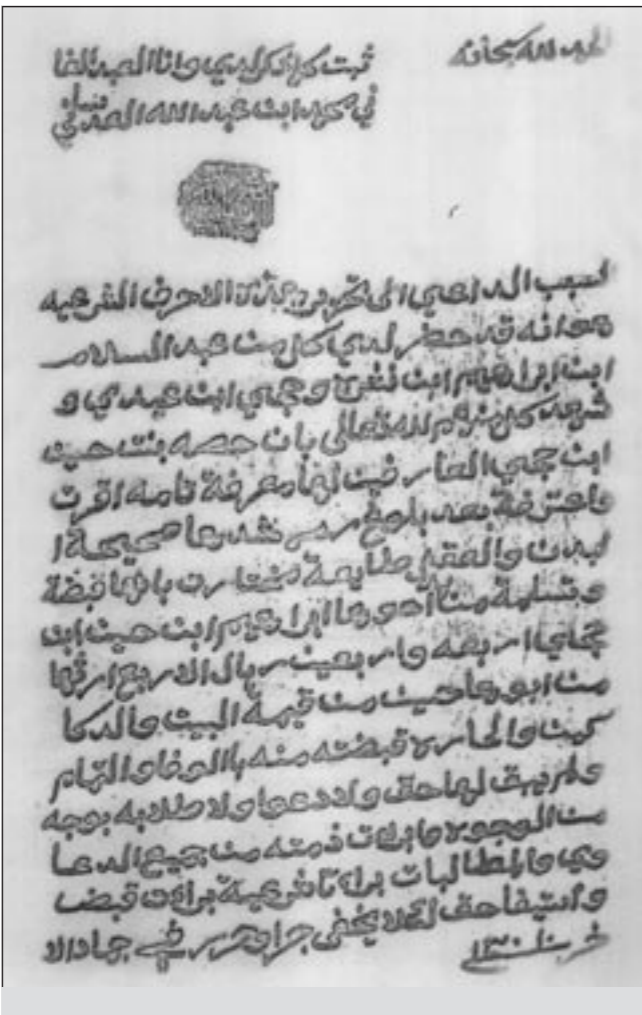 الحمد لله سبحانه
ثبت كما ذكر لدي وانا العبد الفا
ني محمد ابن عبد الله العدساني
السبب الداعي الى تحرير هذه الاحرف الشرعيه
هو انه قد حضر لدي كل من عبد السلام
ابن ابراهيم ابن و حجي ابن عبدي و
شهد كل منهم لله تعالى بان حصه بنت حين
ابن حجي العارفين لها معرفة تامه اقرت
واعترفة بعد بلوغ رشدها صحيحة ا
لبدن والعقل طايعة مختارت بانها قبضة
وتسلمة من اخوها ابراهيم ابن حين ابن
حجاي اربعه واربعين ريال الاربع ارثها
من ابوها حين من قيمة البيت والدكا
كين والحاره قبضته منه باالوفا والتمام
ولم يبق لها حق ولا دعوا ولا طلابه بوجه
من الوجوه وابرات ذمته من جميع الدعا
وي والمطالبات براتا شرعية برات قبض
واستيفا حق لالا يخفى جرا وحرر في جمادالا
خر سنة ١٣٠١